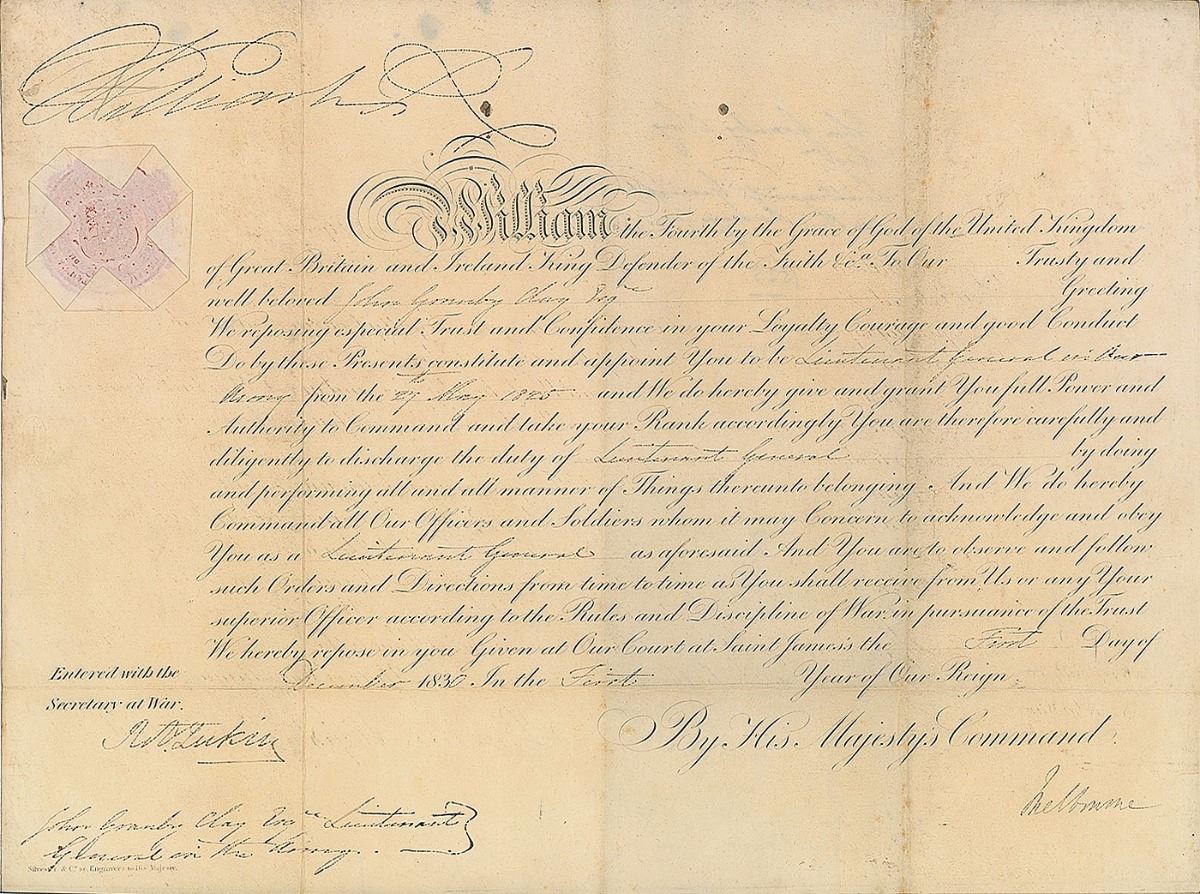 William R
William the Fourth by the Grace of God of the United Kingdom
of Great Britain and Ireland King Defender of the Faith &c.a To Our Trusty and
well beloved John Granby Clay Esqre Greeting
We reposing especial Trust and Confidence in your Loyalty Courage and good Conduct
Do by these Presents constitute and appoint You to be Lieutenant General in Our
Army from the 27th May 1825 and We do hereby give and grant You full Power and
Authority to Command and take your Rank accordingly You are therefore carefully and
diligently to discharge the duty of Lieutenant General by doing
and performing all and all manner of Things thereunto belonging And We do hereby
Command all Our Officers and Soldiers whom it may Concern to acknowledge and obey
You as a Lieutenant General as aforesaid And You are to observe and follow
such Orders and Directions from time to time as You shall receive from Us or any Your
superior Officer according to the Rules and Discipline of War, in pursuance of the Trust
We hereby repose in you Given at Our Court at Saint James's the First Day of
December 1830 In the First Year of Our Reign.
Entered with the
Secretary at War.
By His Majesty's Command.
Melbourne
John Granby Clay Esqre Lieutenant
General in the Army.
Silvester & Co. Engravers to His Majesty.